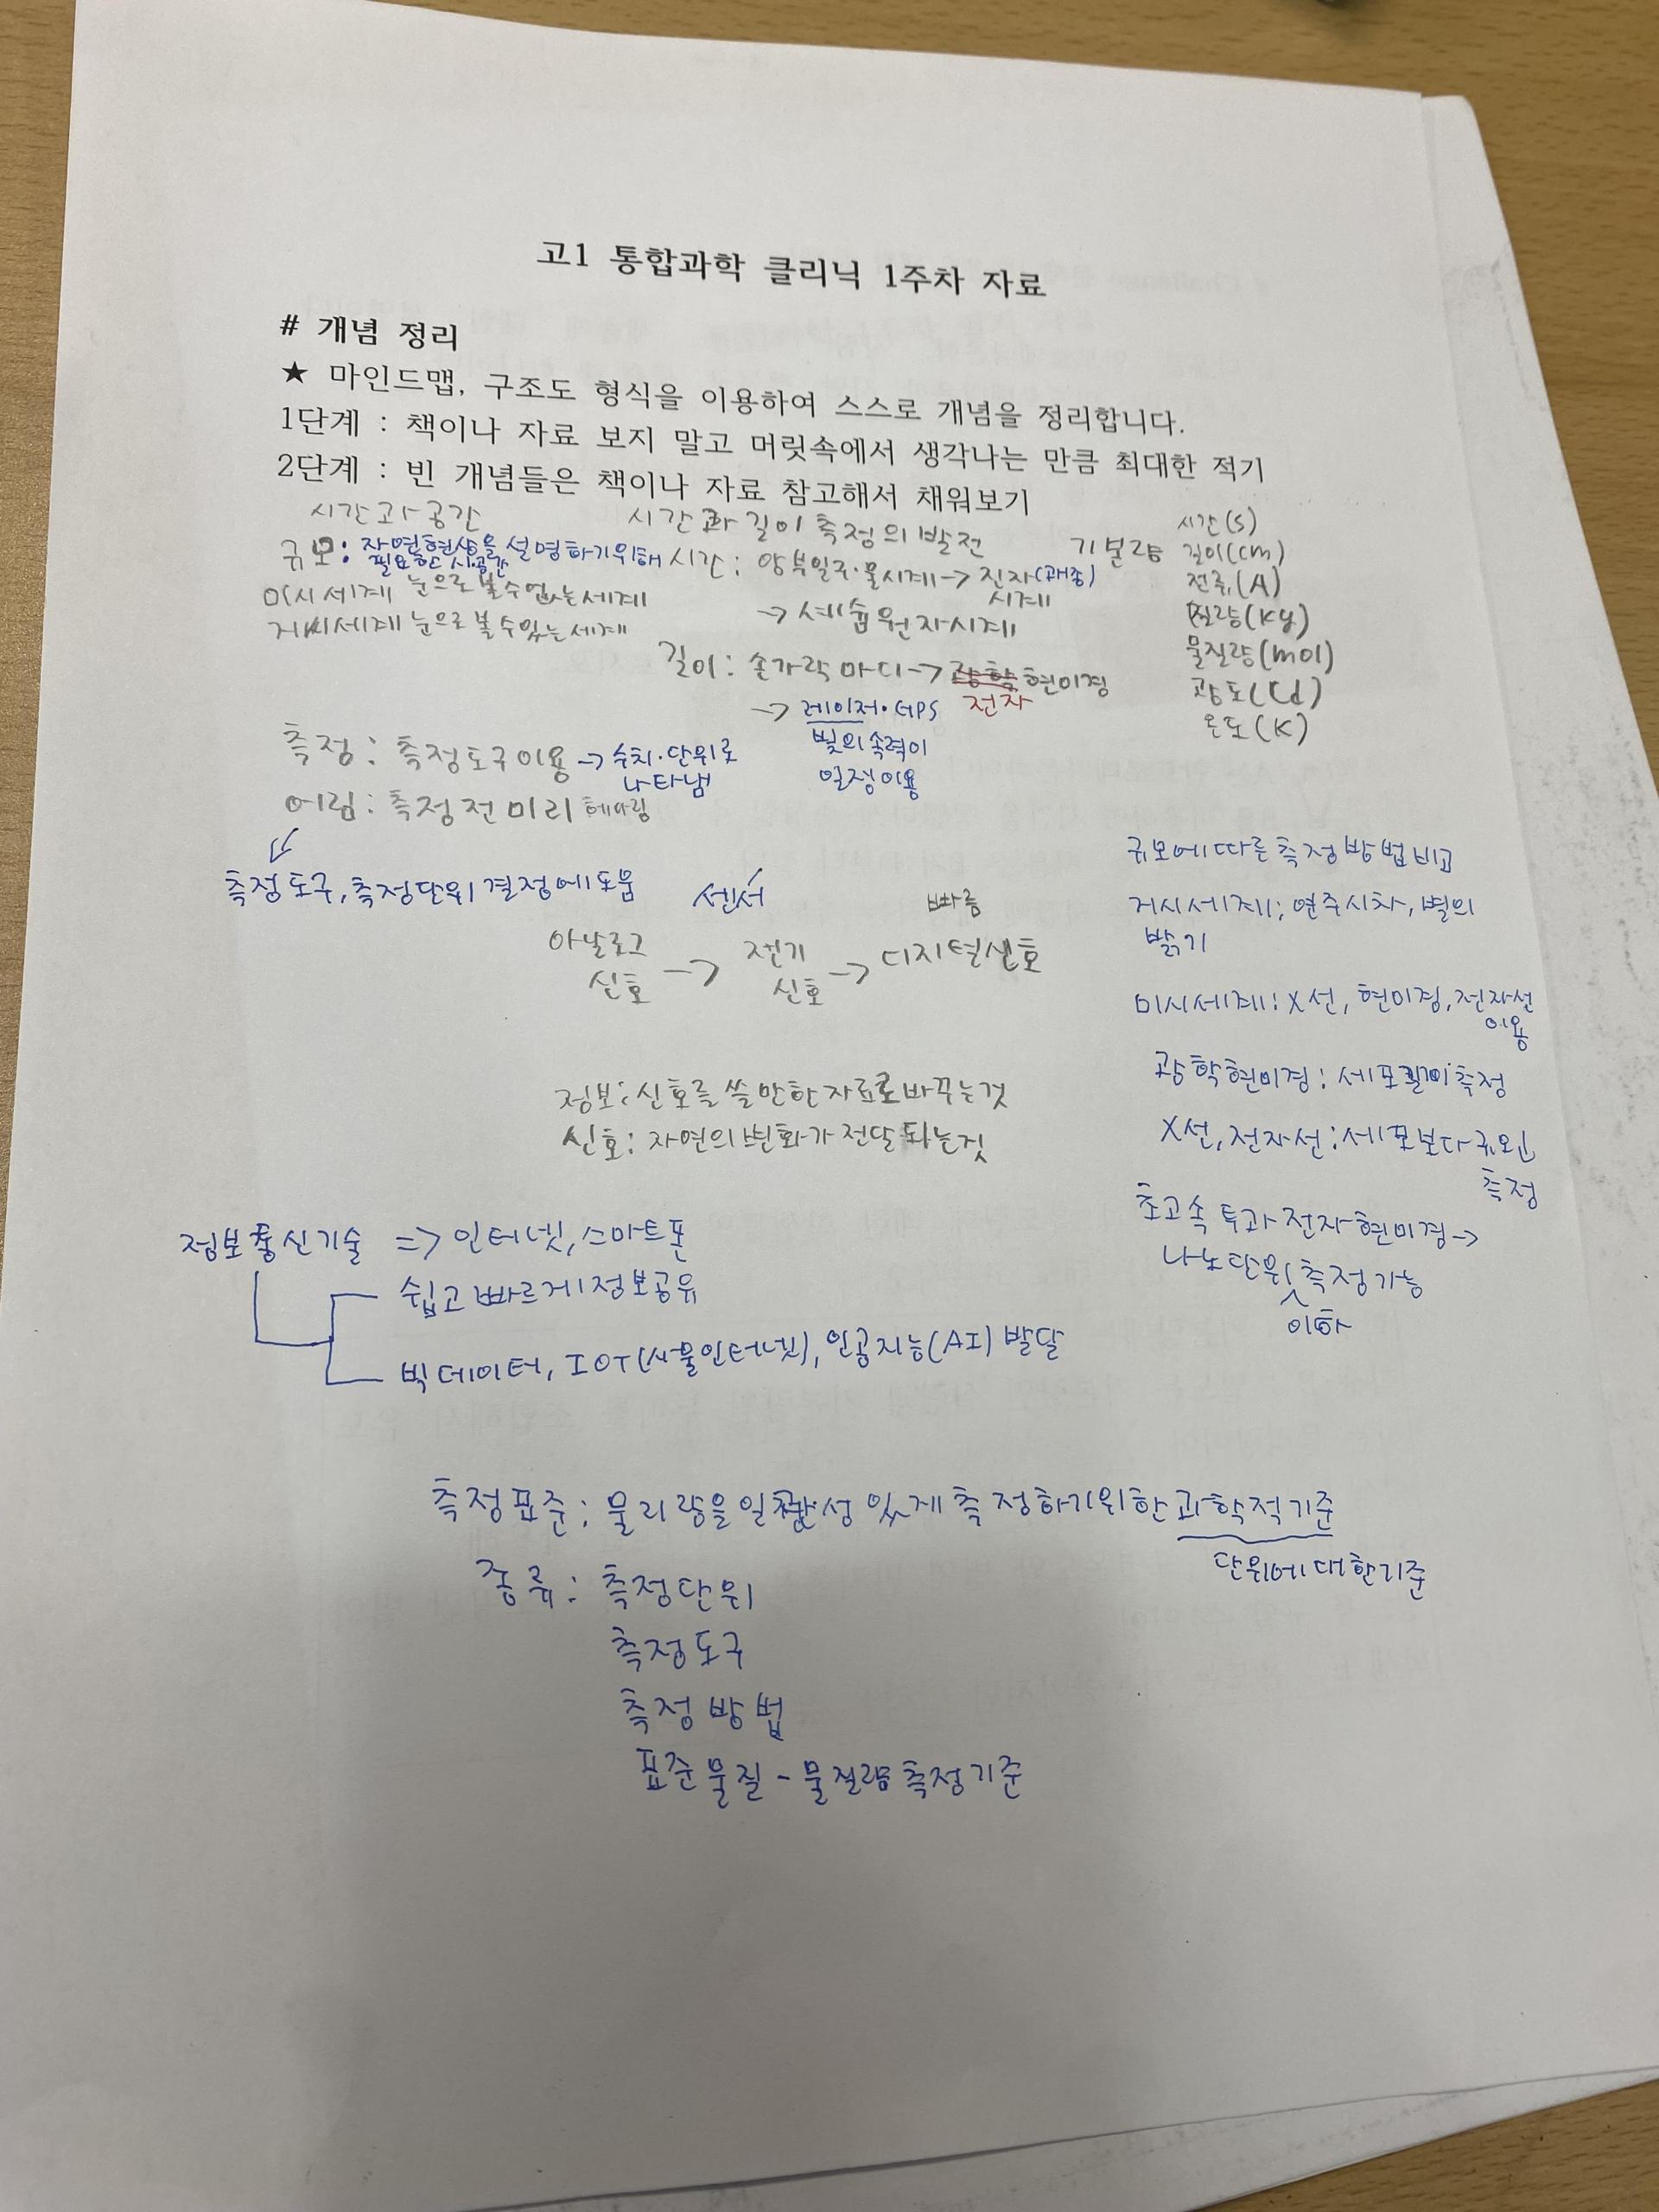 고1 통합과학 클리닉 1주차 자료
# 개념 정리
★ 마인드맵, 구조도 형식을 이용하여 스스로 개념을 정리합니다.
1단계 : 책이나 자료 보지 말고 머릿속에서 생각나는 만큼 최대한 적기
2단계 : 빈 개념들은 책이나 자료 참고해서 채워보기
시간과 공간
규모: 자연현상을 설명하기위해
필요한 시·공간
미시세계 눈으로 볼수없는세계
거시세계 눈으로 볼수있는세계
시간과 길이 측정의 발전
시간: 앙부일구·물시계 → 진자(괘종)
시계
→ 세슘원자시계
길이: 손가락 마디 → 광학 현미경
전자
→ 레이저·GPS
빛의 속력이
일정이용
기본량
시간(s)
길이(cm)
전류(A)
질량(kg)
물질량(mol)
광도(Cd)
온도(K)
측정: 측정도구이용 → 수치·단위로
나타냄
어림: 측정 전 미리 헤아림
측정도구, 측정단위 결정에 도움
센서
빠름
아날로그
신호
→ 전기
신호
→ 디지털신호
정보: 신호를 쓸만한 자료로 바꾸는것
신호: 자연의 변화가 전달되는것
규모에 따른 측정 방법 비교
거시세계: 연주시차, 별의
밝기
미시세계: X선, 현미경, 전자선
이용
광학현미경: 세포 측정
X선, 전자선: 세포보다
측정
초고속 투과 전자현미경 →
나노단위 측정가능
이하
정보통신기술 => 인터넷, 스마트폰
쉽고 빠르게 정보공유
빅데이터, IOT(사물인터넷), 인공지능(AI) 발달
측정표준: 물리량을 일관성 있게 측정하기위한 과학적기준
단위에 대한기준
종류: 측정단위
측정도구
측정 방법
표준물질 - 물질량 측정기준